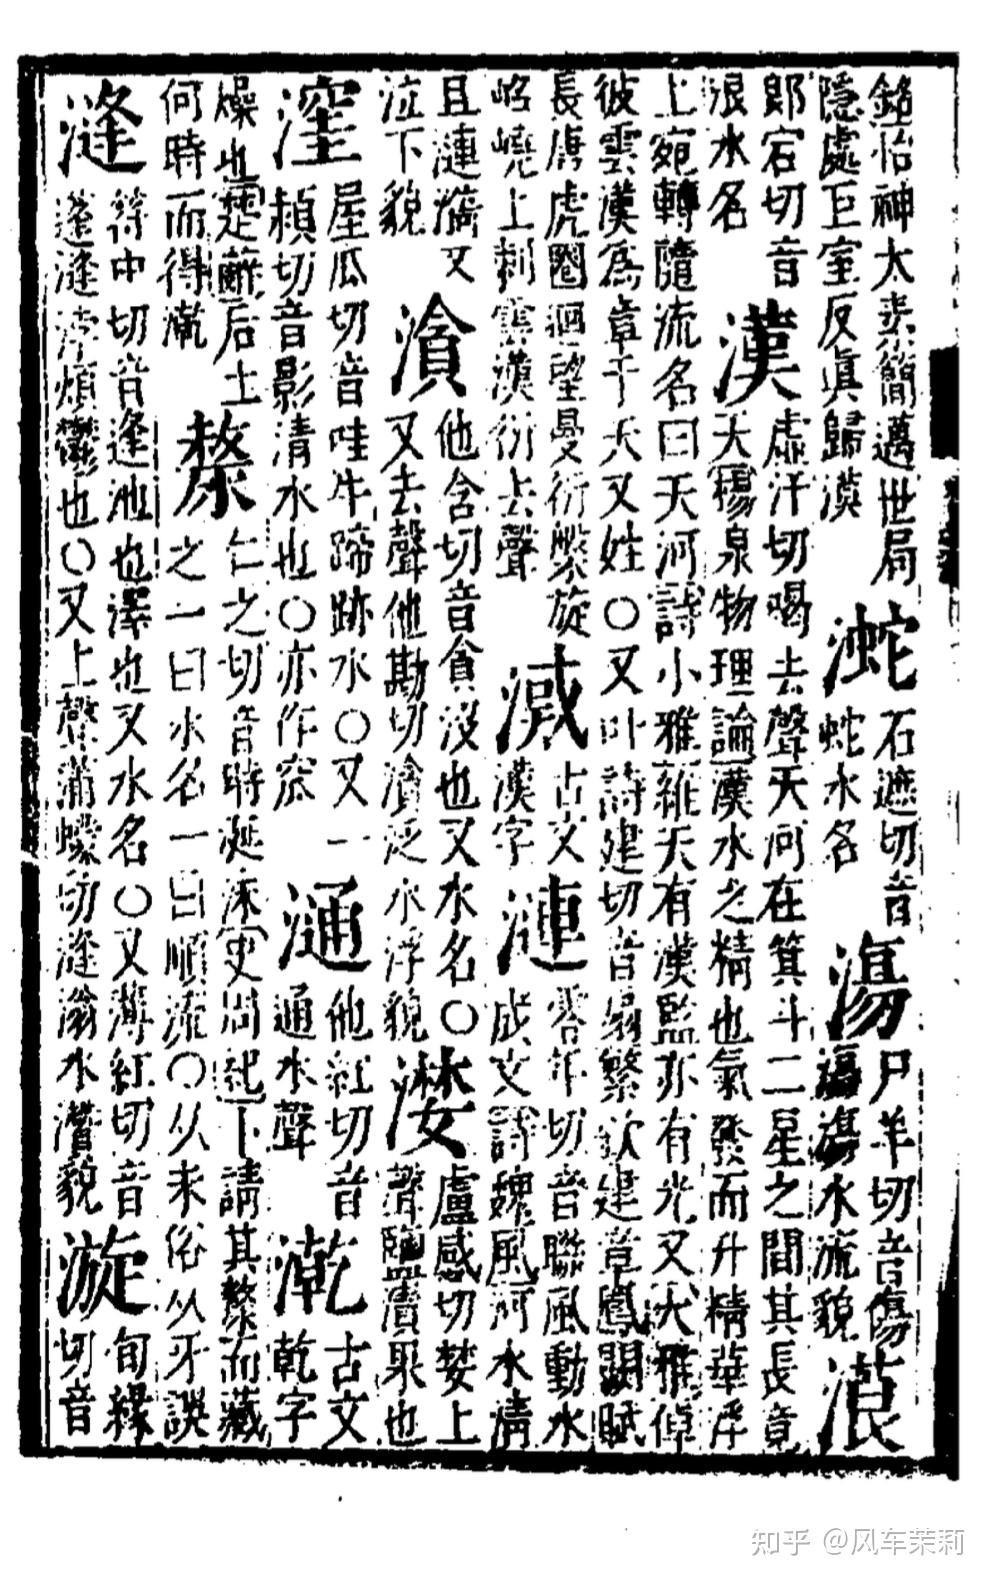 銘怡神太素簡邁世局
隱處巨室反眞歸漠
石遮切音
蛇水名
漡
尸羊切音傷
漡漡水流貌
郎宕切音
浪水名
漢
虛汗切暵去聲天河在箕斗二星之間其長竟
天楊泉物理論漢水之精也氣發而升精華浮
上宛轉隨流名曰天河詩小雅維天有漢監亦有光又大雅倬
彼雲漢爲章于天又姓〇又叶詩建切音繁欽建章鳳闕賦
長唐虎圈迴望曼衍盤旋
岧嶢上刺雲漢衍去聲
古文
漢字
漣
零年切音聯風動水
成文詩魏風河水淸
且漣漪又
泣下貌
他含切音貪没也又水名〇
又去聲他勘切泛水浮貌
漤
盧感切婪上
聲鹽漬果也
漥
屋瓜切音哇牛蹄跡水〇又一
頰切音影清水也〇亦作窊
他紅切音
通水聲
漧
古文
乾字
燥也楚辭后土
何時而得漧
漦
仁之切音時涎沫史周紀卜請其漦而藏
之一曰水名一曰順流〇从未俗从牙誤
漨
符中切音逢池也澤也又水名〇又薄紅切音
蓬漨浡煩鬱也〇又上聲蒲蠓切漨滃水瀵貌
漩
旬緣
切音
知乎 @风车茉莉